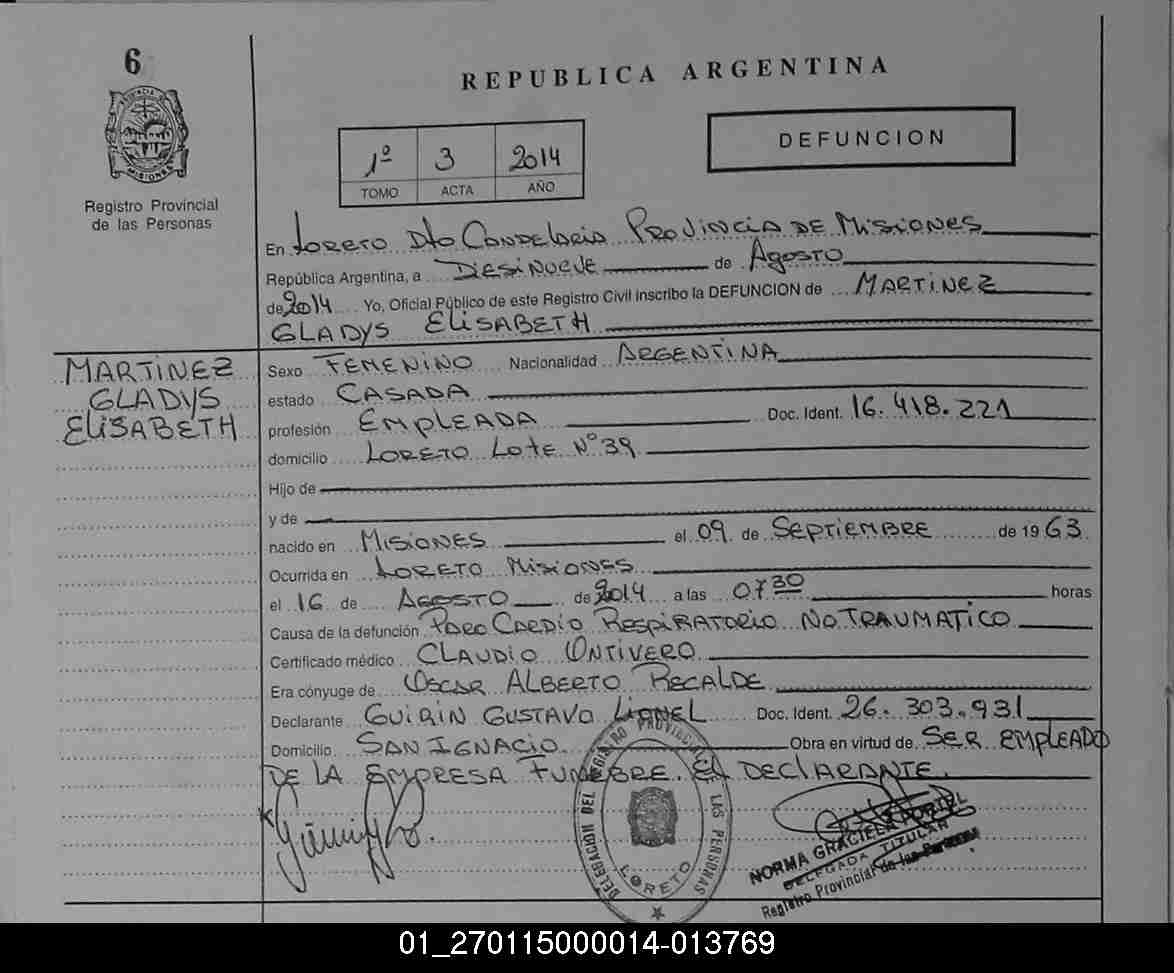 6
REPUBLICA ARGENTINA
PROVINCIA DE
MISIONES
Registro Provincial
de las Personas
1º 3 2014
TOMO ACTA AÑO
DEFUNCION
En LORETO Dto CANDELARIA PROVINCIA DE MISIONES
República Argentina, a DIESINUEVE de AGOSTO
de 2014 Yo, Oficial Público de este Registro Civil inscribo la DEFUNCION de MARTINEZ
GLADYS ELISABETH
MARTINEZ
GLADYS
ELISABETH
Sexo FEMENINO Nacionalidad ARGENTINA
estado CASADA
profesión EMPLEADA Doc. Ident. 16.418.221
domicilio LORETO LOTE Nº 39
Hijo de
y de
nacido en MISIONES el 09 de SEPTIEMBRE de 1963
Ocurrida en LORETO MISIONES
el 16 de AGOSTO de 2014 a las 07 30 horas
Causa de la defunción PARO CARDIO RESPIRATORIO NO TRAUMATICO
Certificado médico CLAUDIO ONTIVERO
Era cónyuge de OSCAR ALBERTO RECALDE
Declarante GUIRIN GUSTAVO LIONEL Doc. Ident. 26.303.931
Domicilio SAN IGNACIO Obra en virtud de SER EMPLEADO
DE LA EMPRESA FUNEBRE. EL DECLARANTE.
DELEGACIÓN DEL REGISTRO PROVINCIAL DE LAS PERSONAS
LORETO
NORMA GRACIELA PORTEL
DELEGADA TITULAR
Registro Provincial de las Personas
01_270115000014-013769